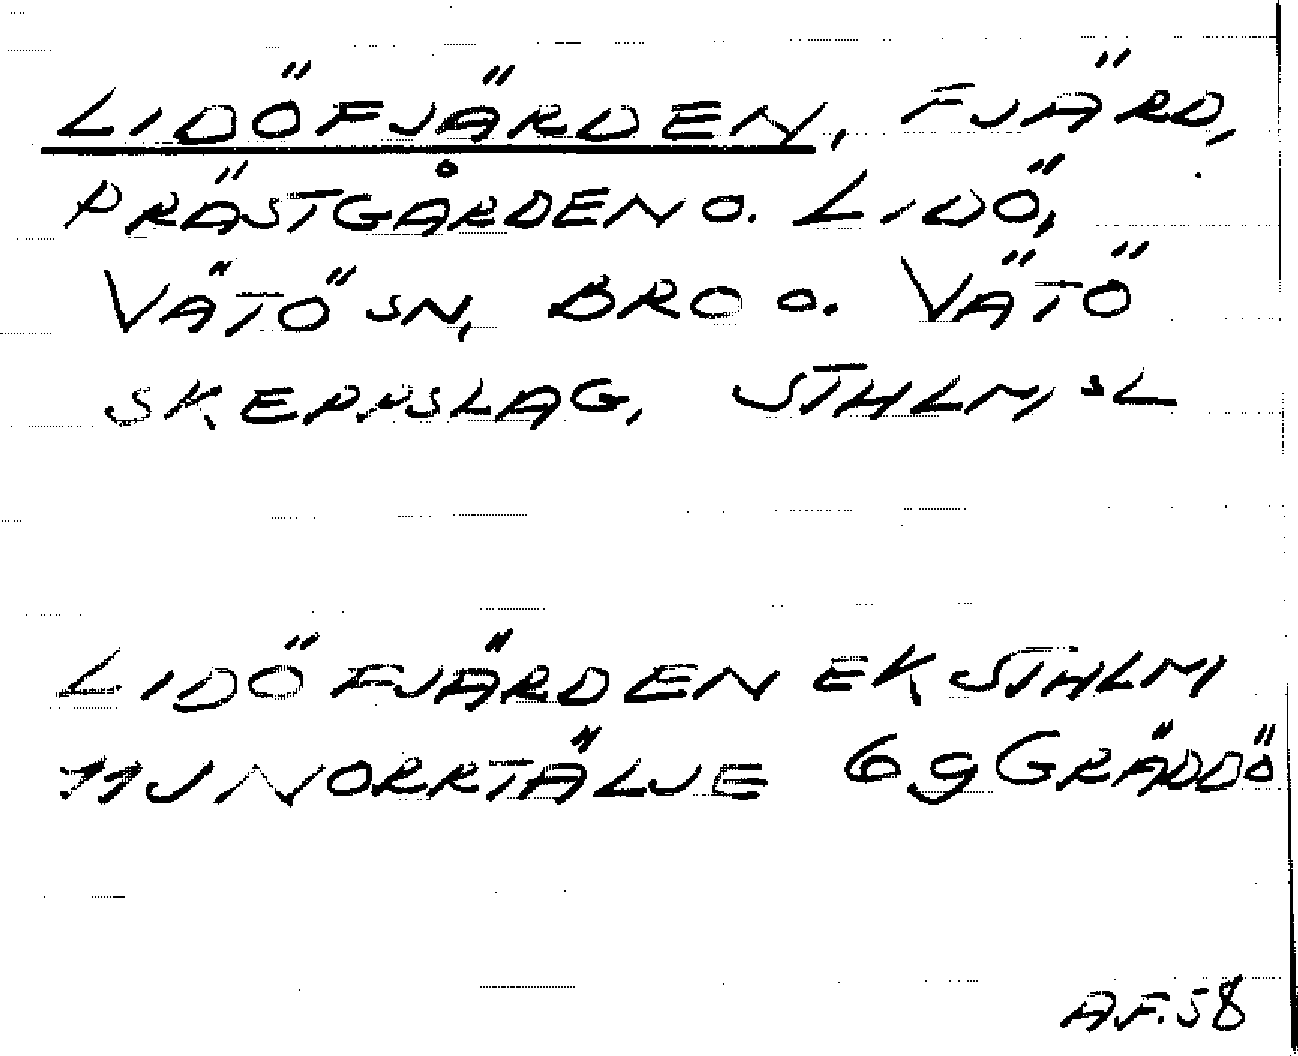 LIDÖFJÄRDEN, FJÄRD,
PRÄSTGÅRDEN O. LIDÖ,
VÄTÖ SN, BRO O. VÄTÖ
SKEPPSLAG, STHLM,SL
LIDÖFJÄRDEN EK STHLM
11J NORRTÄLJE 6g GRÄDDÖ
A.F.58